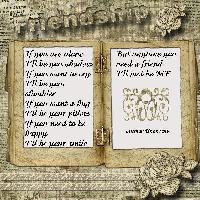 If you are alone
I'll be your shadow
If you want to cry
I'll be your
shoulder
If you want a hug
I'll be your pillow
If you need to be
happy
I'll be your smile
But anytime you
need a friend
I'll just be ME